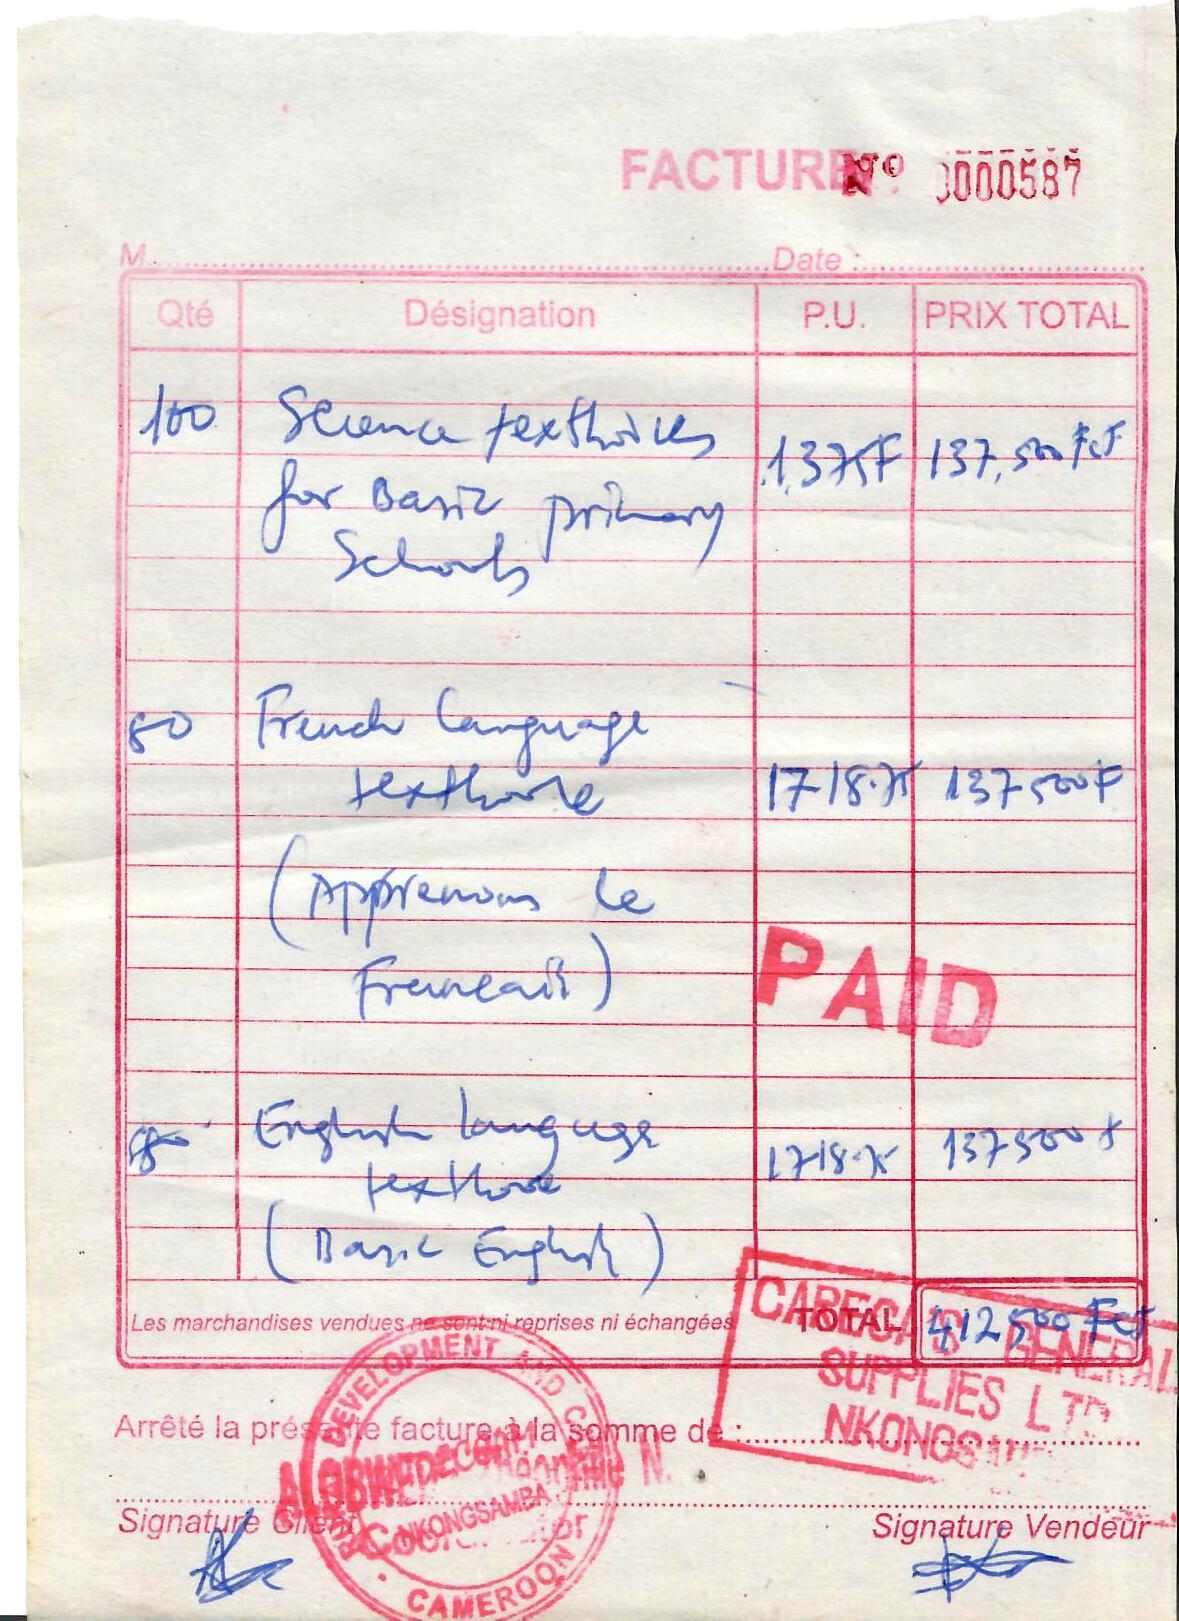 FACTURE N° 0000587
M. Date :
Qté Désignation P.U. PRIX TOTAL
100 Science textbooks 1,375F 137,500 Fcf
for Basic primary
Schools
80 French Language
textbook 1718.75 137500F
(Apprenons le
Francais)
PAID
80 English language 137500 f
textbook 1718.75
(Basic English)
Les marchandises vendues ne sont ni reprises ni échangées TOTAL 412500 Fcf
GENERAL
SUPPLIES LTD
NKONGSAMBA
Arrêté la présente facture à la somme de :
DEVELOPMENT AND
NKONGSAMBA
CAMEROON
Signature Client Signature Vendeur